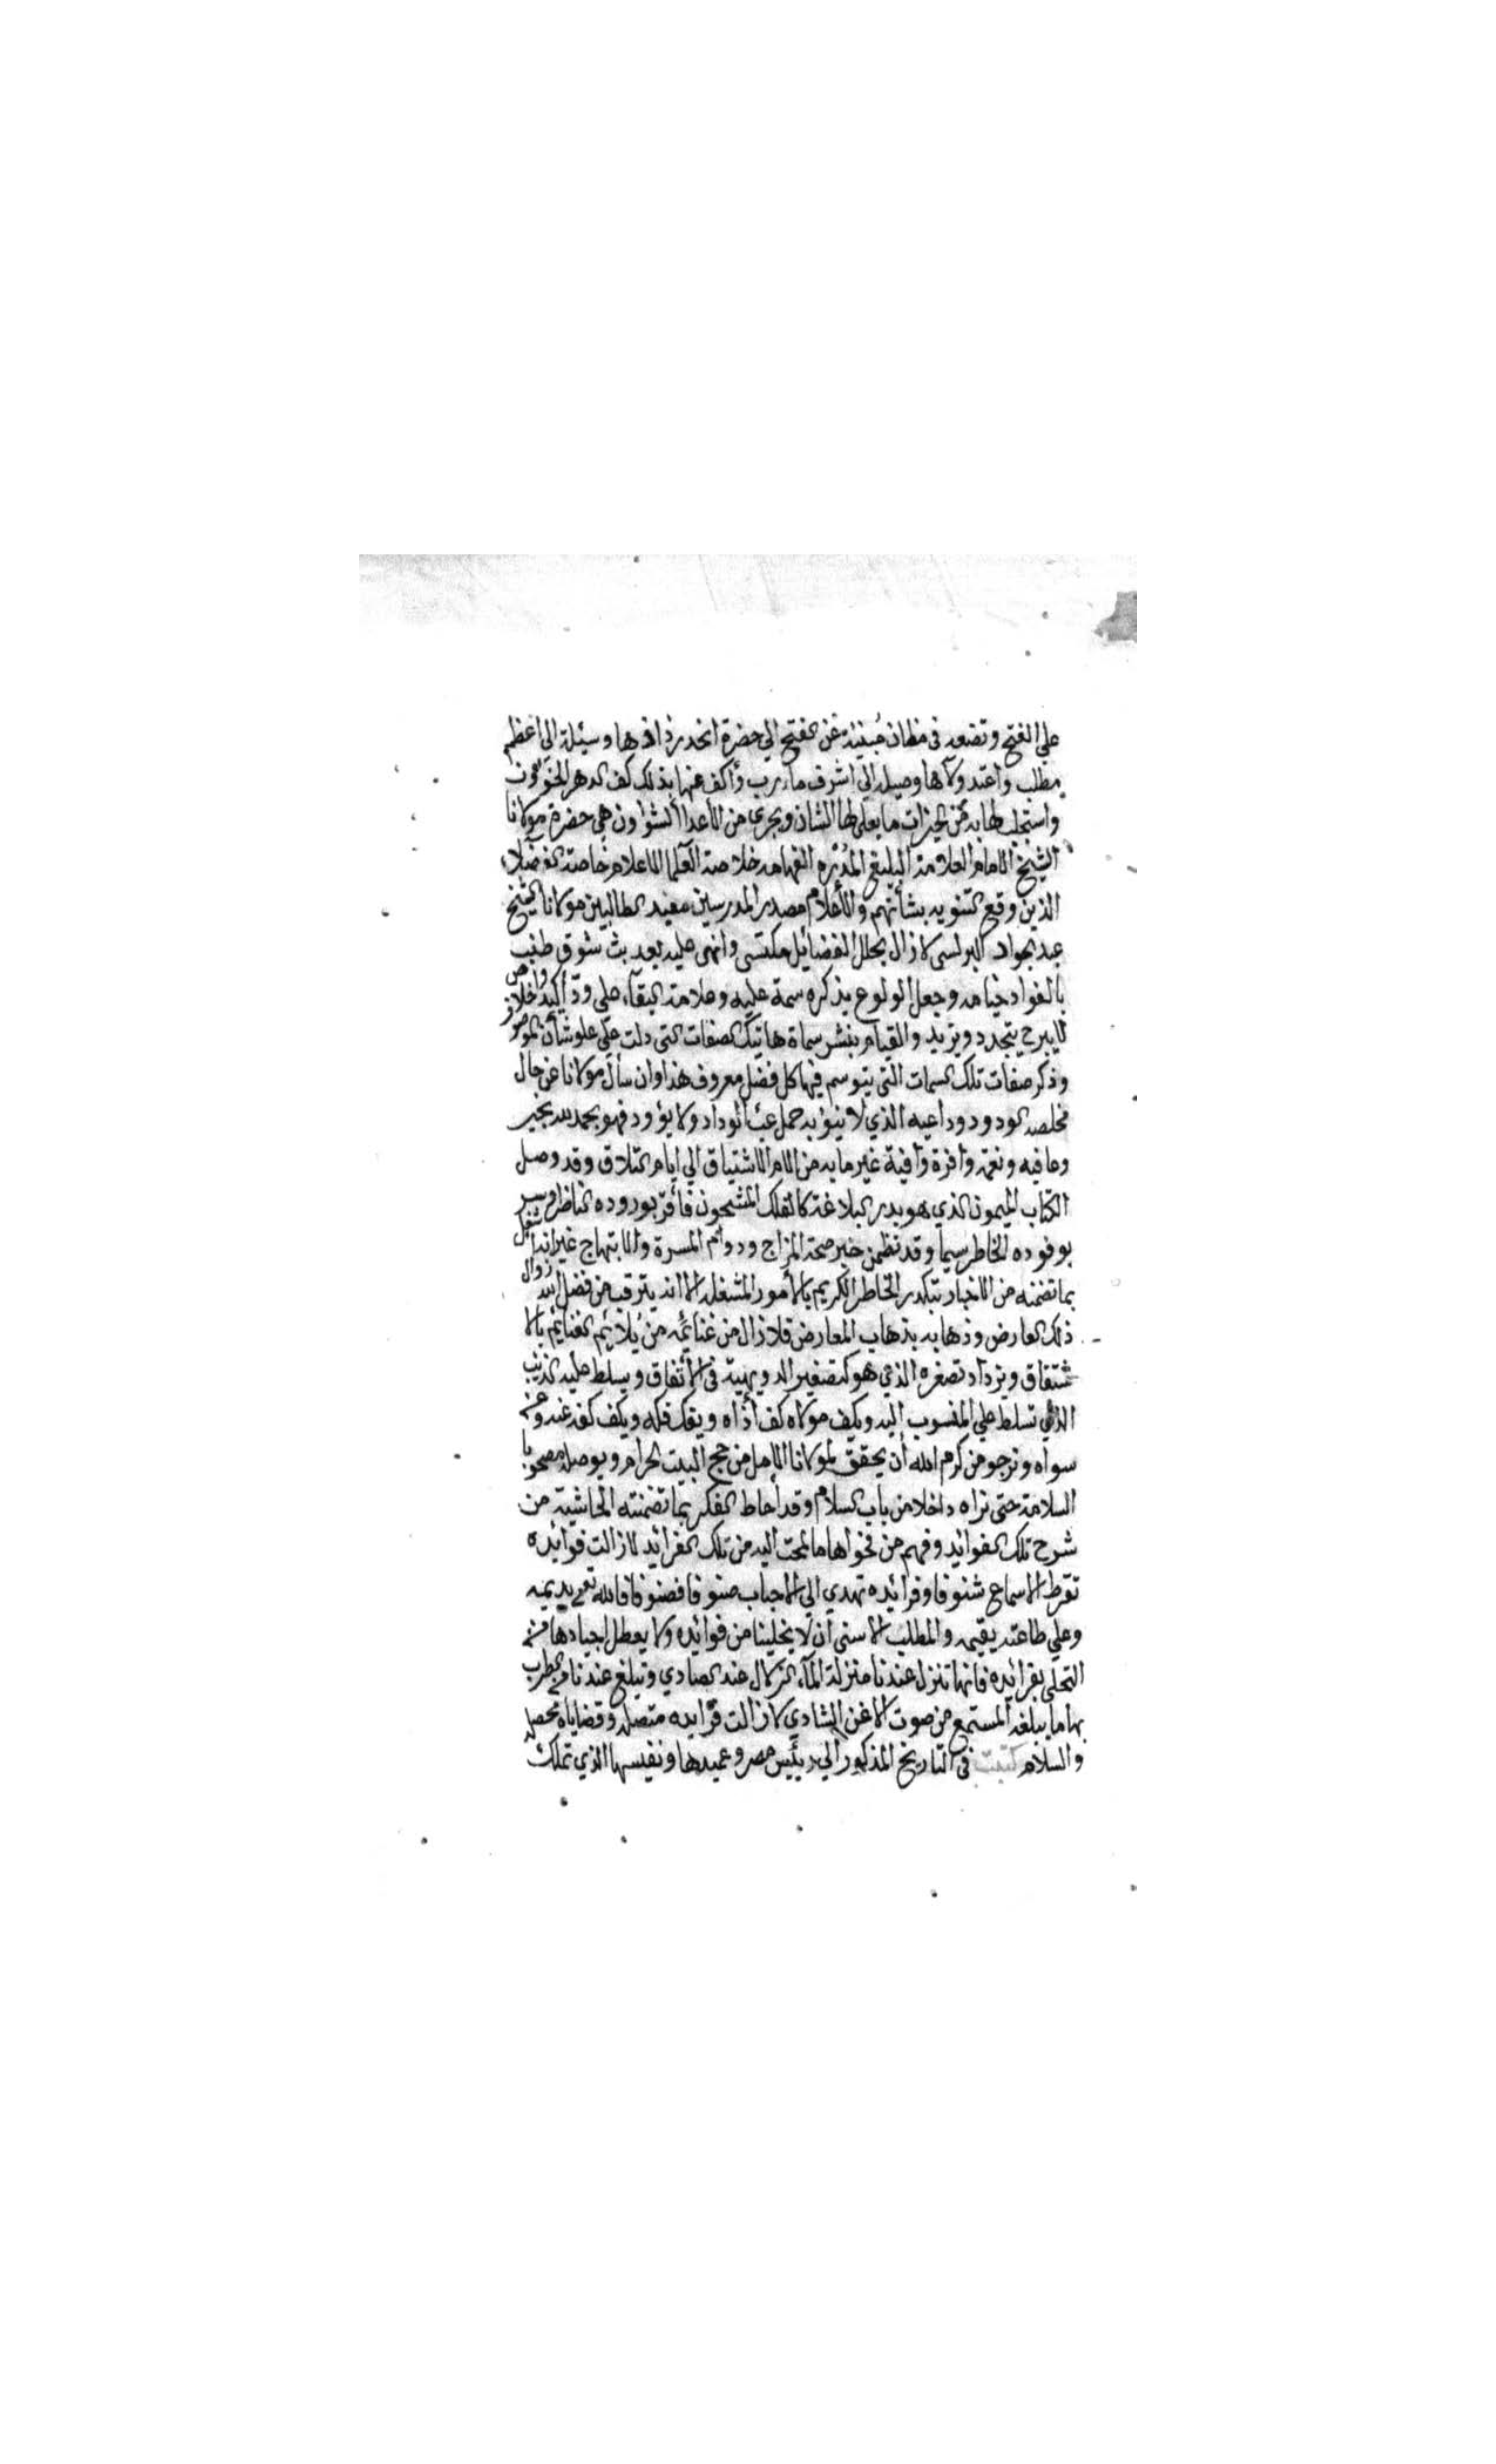 علي الفتح وتضعد في مظان مبينة عن الفتح الي حضرة اتخدمرذاتها وسيئلة الي اعظم
مطلب واعتد ولآها وصيلة الي اشرف مارب وأكف عنها بذلك كف الدهر الخؤون
واستجلب لها به من الخيرات ما يعلي لها الشان ويجري من الاعدا الشوا ون هي حضرة مولانا
الشيخ الامام العلامة البليغ المدره الفهامه خلاصة العلما الاعلام خاصة الفضلاء
الذين وقع التنويه بشأنهم والأعلام مصدر المدرسين مفيد الطالبين مولانا الشيخ
عبد الجواد البرلسي لازال بحلل الفضايل مكتسي وانهى عليه بعد بث شوق طنب
بالفواد خيامه وجعل الولوع بذكره سمة عليه وعلامة البقاء على ود أكيد واخلاص
لايبرح يتجدد ويزيد والقيام بنشر سماة هاتيك الصفات التي دلت علي علو شأن الموصوف
وذكر صفات تلك السمات التي يتوسم فيها كل فضل معروف هذا وان سأل مولانا عن حال
مخلصه الودود وداعيه الذي لا ينؤ به حمل عبئ الوداد ولا يؤود فهو بحمد الله بخير
وعافيه ونعمة وافرة وافية غير ما به من الام الاشتياق الي ايام التلاق وقد وصل
الكتاب الميمون الذي هو بدر البلاغة كالفلك المشحون فأقر بوروده الناظر وسر
بوفوده الخاطر سيما وقد نظمن خبر صحة المزاج ودوام المسرة والابتهاج غير انه اشغل
بما تضمنه من الاخبار بتكدر الخاطر الكريم بالأمور المشغلة الا انه يترقب من فضل الله زوال
ذلك العارض وذهابه بذهاب المعارض فلازال من غنائمه من يلائم الغنايم بالا
شتقاق ويزداد تصغره الذي هو كتصغير الدويهية في الأتفاق ويسلط عليه الذيب
الذي تسلط علي المنسوب اليه ويكف مولاه كف أذاه ويفك فكه ويكف كفه عنه وعن
سواه ونرجو من كرم الله أن يحقق لمولانا الامل من حج البيت الحرام ويوصله مصحوبا
السلامة حتى نراه داخلا من باب السلام وقد أحاط الفكر بما تضمنته الحاشية من
شرح تلك الفوائد وفهم من فحواها ما لمحت اليه من تلك الفرائد لازالت فوائده
تقرط الاسماع شنوفا وفرائده تهدي الي الاحباب صنوفا فصنوفا فالله تعالي يديمه
وعلي طاعته يقيمه والمطلب الاسنى أن لا يخلينا من فوائده ولا يعطل اجيادها من
التحلي بفرائده فانها تنزل عندنا منزلة المآء الزلال عند الصادي وتبلغ عندنا من الطرب
بها ما يبلغه المستمع من صوت الاغن الشادي لازالت فرايده متصلة وقضاياه محصلة
والسلام كتبت في التاريخ المذكور الي رئيس مصر وعميدها ونفيسها الذي تملك